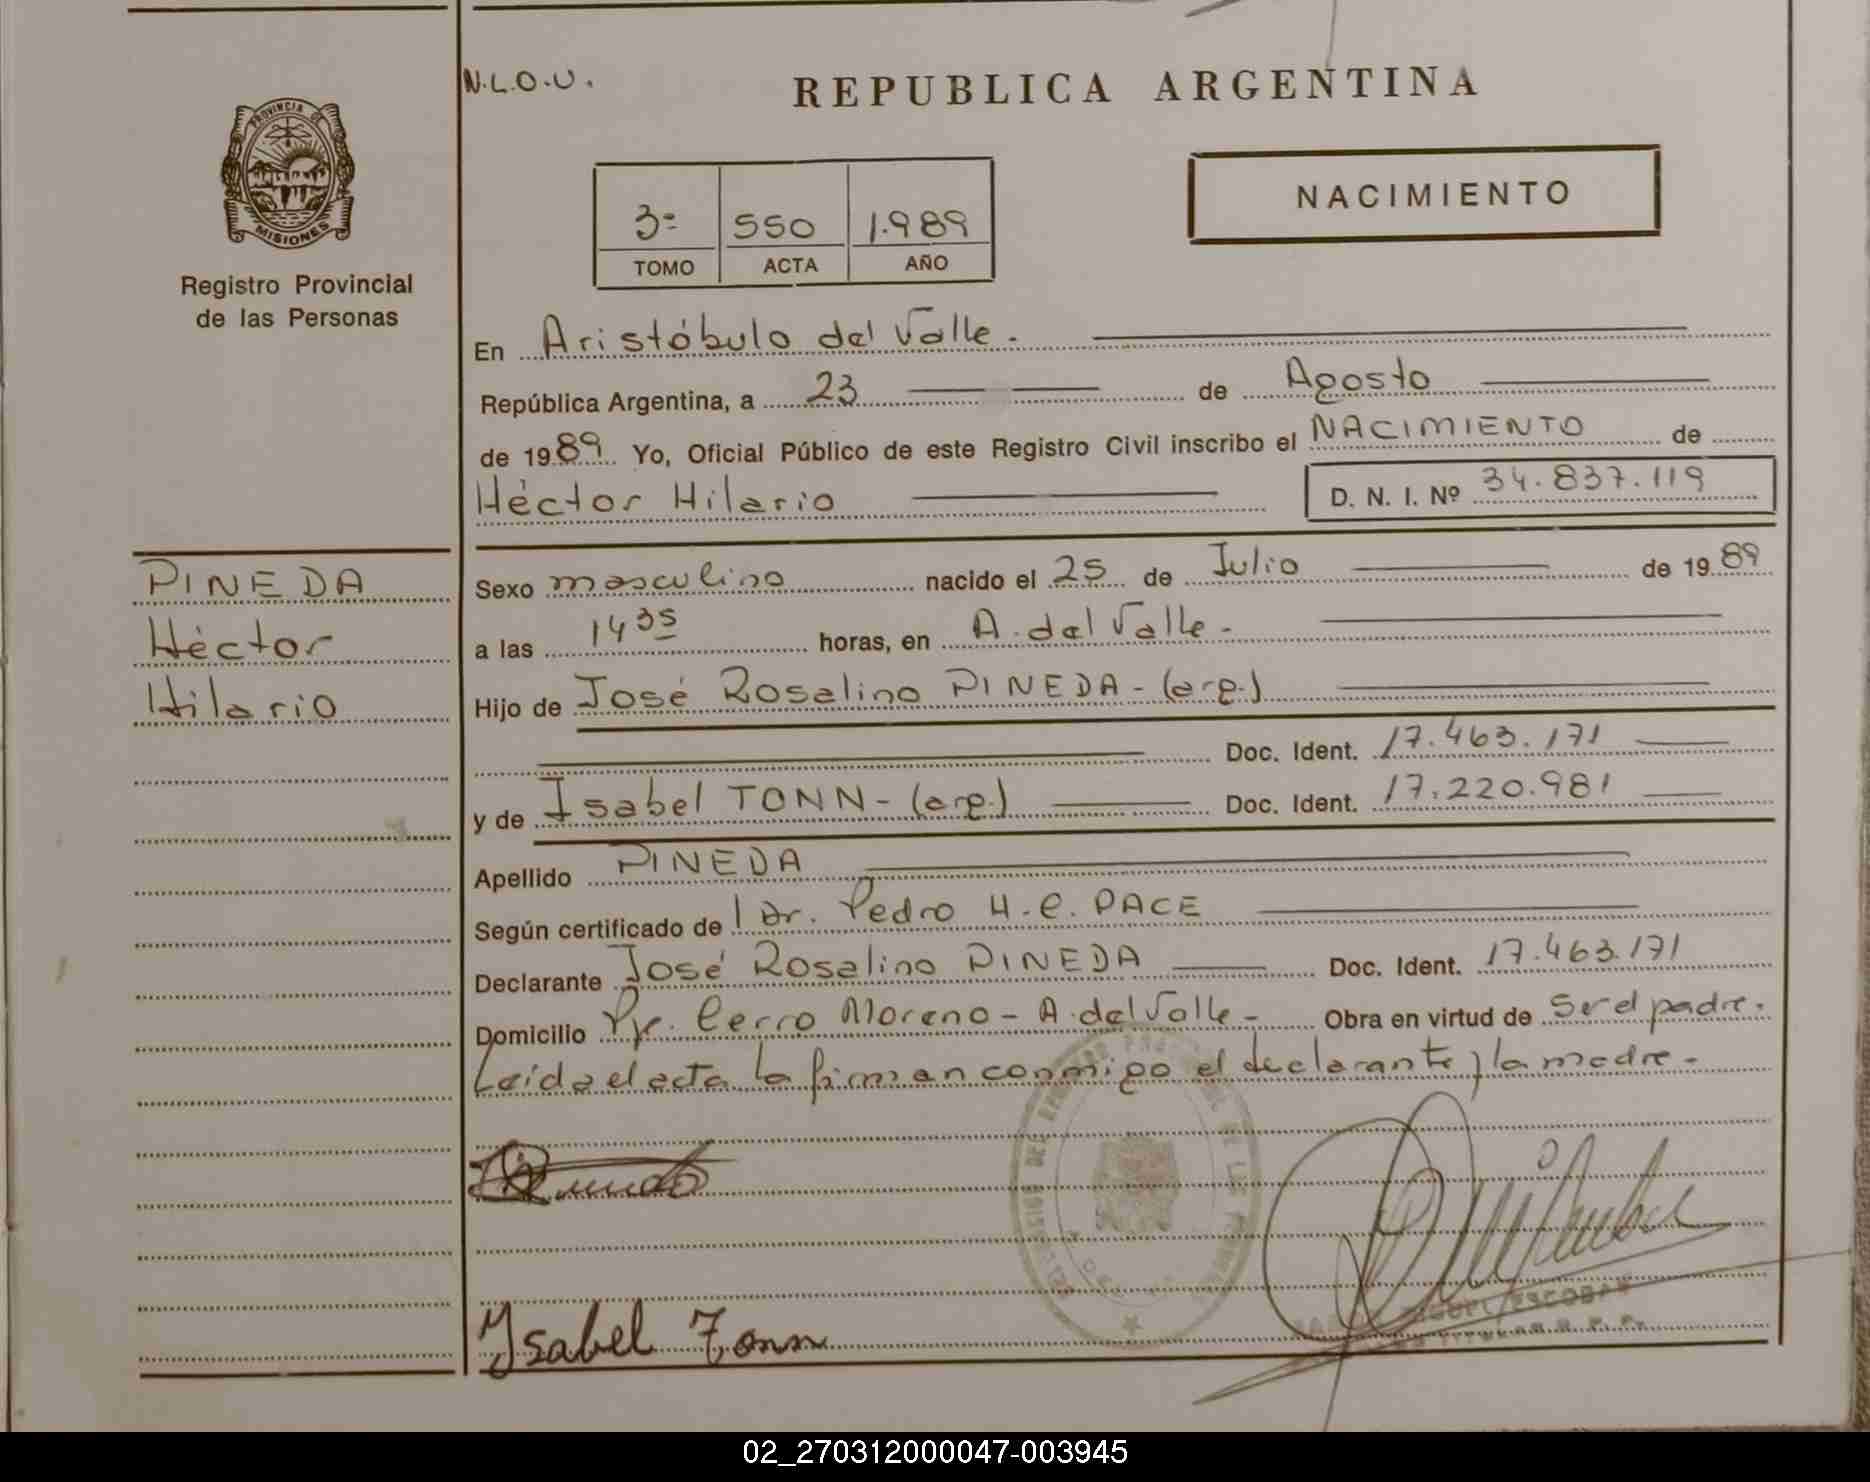 N.L.O.U.
REPUBLICA ARGENTINA
PROVINCIA DE MISIONES
NACIMIENTO
3º 550 1.989
TOMO ACTA AÑO
Registro Provincial
de las Personas
En Aristóbulo del Valle.
República Argentina, a 23 de Agosto
de 1989 Yo, Oficial Público de este Registro Civil inscribo el NACIMIENTO de
Héctor Hilario D. N. I. Nº 34.837.119
PINEDA
Héctor
Hilario
Sexo masculino nacido el 25 de Julio de 1989
a las 14 35 horas, en A. del Valle.-
Hijo de José Rosalino PINEDA - (arg.)
Doc. Ident. 17.463.171
y de Isabel TONN - (arg.) Doc. Ident. 17.220.981
Apellido PINEDA
Según certificado de l Dr. Pedro H.C. PACE
Declarante José Rosalino PINEDA Doc. Ident. 17.463.171
Domicilio Pje. Cerro Moreno - A. del Valle - Obra en virtud de Ser el padre.
Leída el acta la firman conmigo el declarante y la madre -
Isabel Tonn
MIGUEL ESCOBAR
02_270312000047-003945